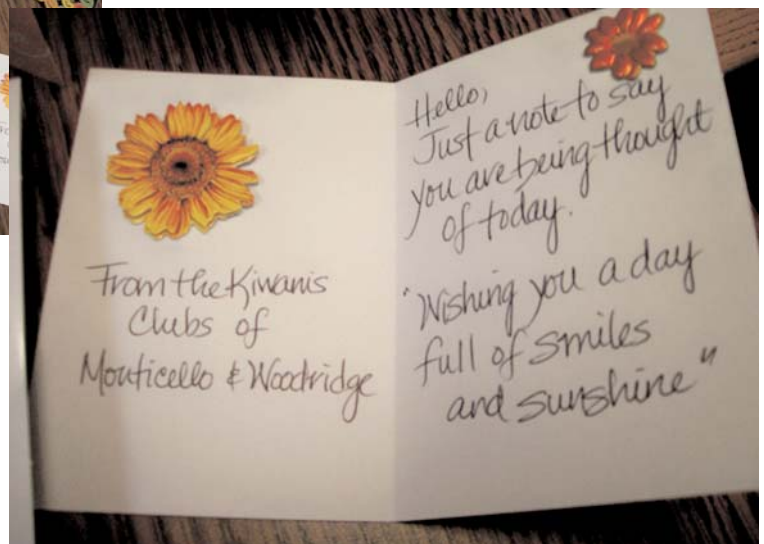 From the Kiwanis
Clubs of
Monticello & Woodridge
Hello,
Just a note to say
you are being thought
of today.
"Wishing you a day
full of smiles
and sunshine"